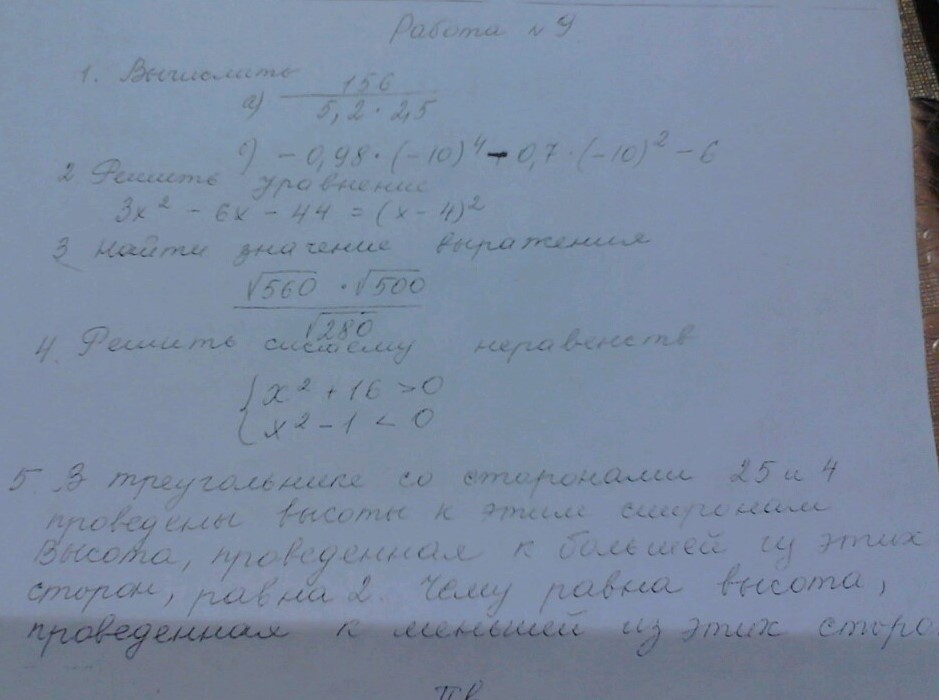 Работа N 9
1. Вычислить
а) 156 / 5,2 · 2,5
б) - 0,98 · (-10)^4 - 0,7 · (-10)^2 - 6
2. Решить уравнение
3x^2 - 6x - 44 = (x - 4)^2
3 Найти значение выражения
√560 · √500 / √280
4. Решить систему неравенств
{ x^2 + 16 > 0
x^2 - 1 < 0
5. В треугольнике со сторонами 25 и 4
проведены высоты к этим сторонам
Высота, проведенная к большей из этих
сторон, равна 2. Чему равна высота,
проведенная к меньшей из этих сторо